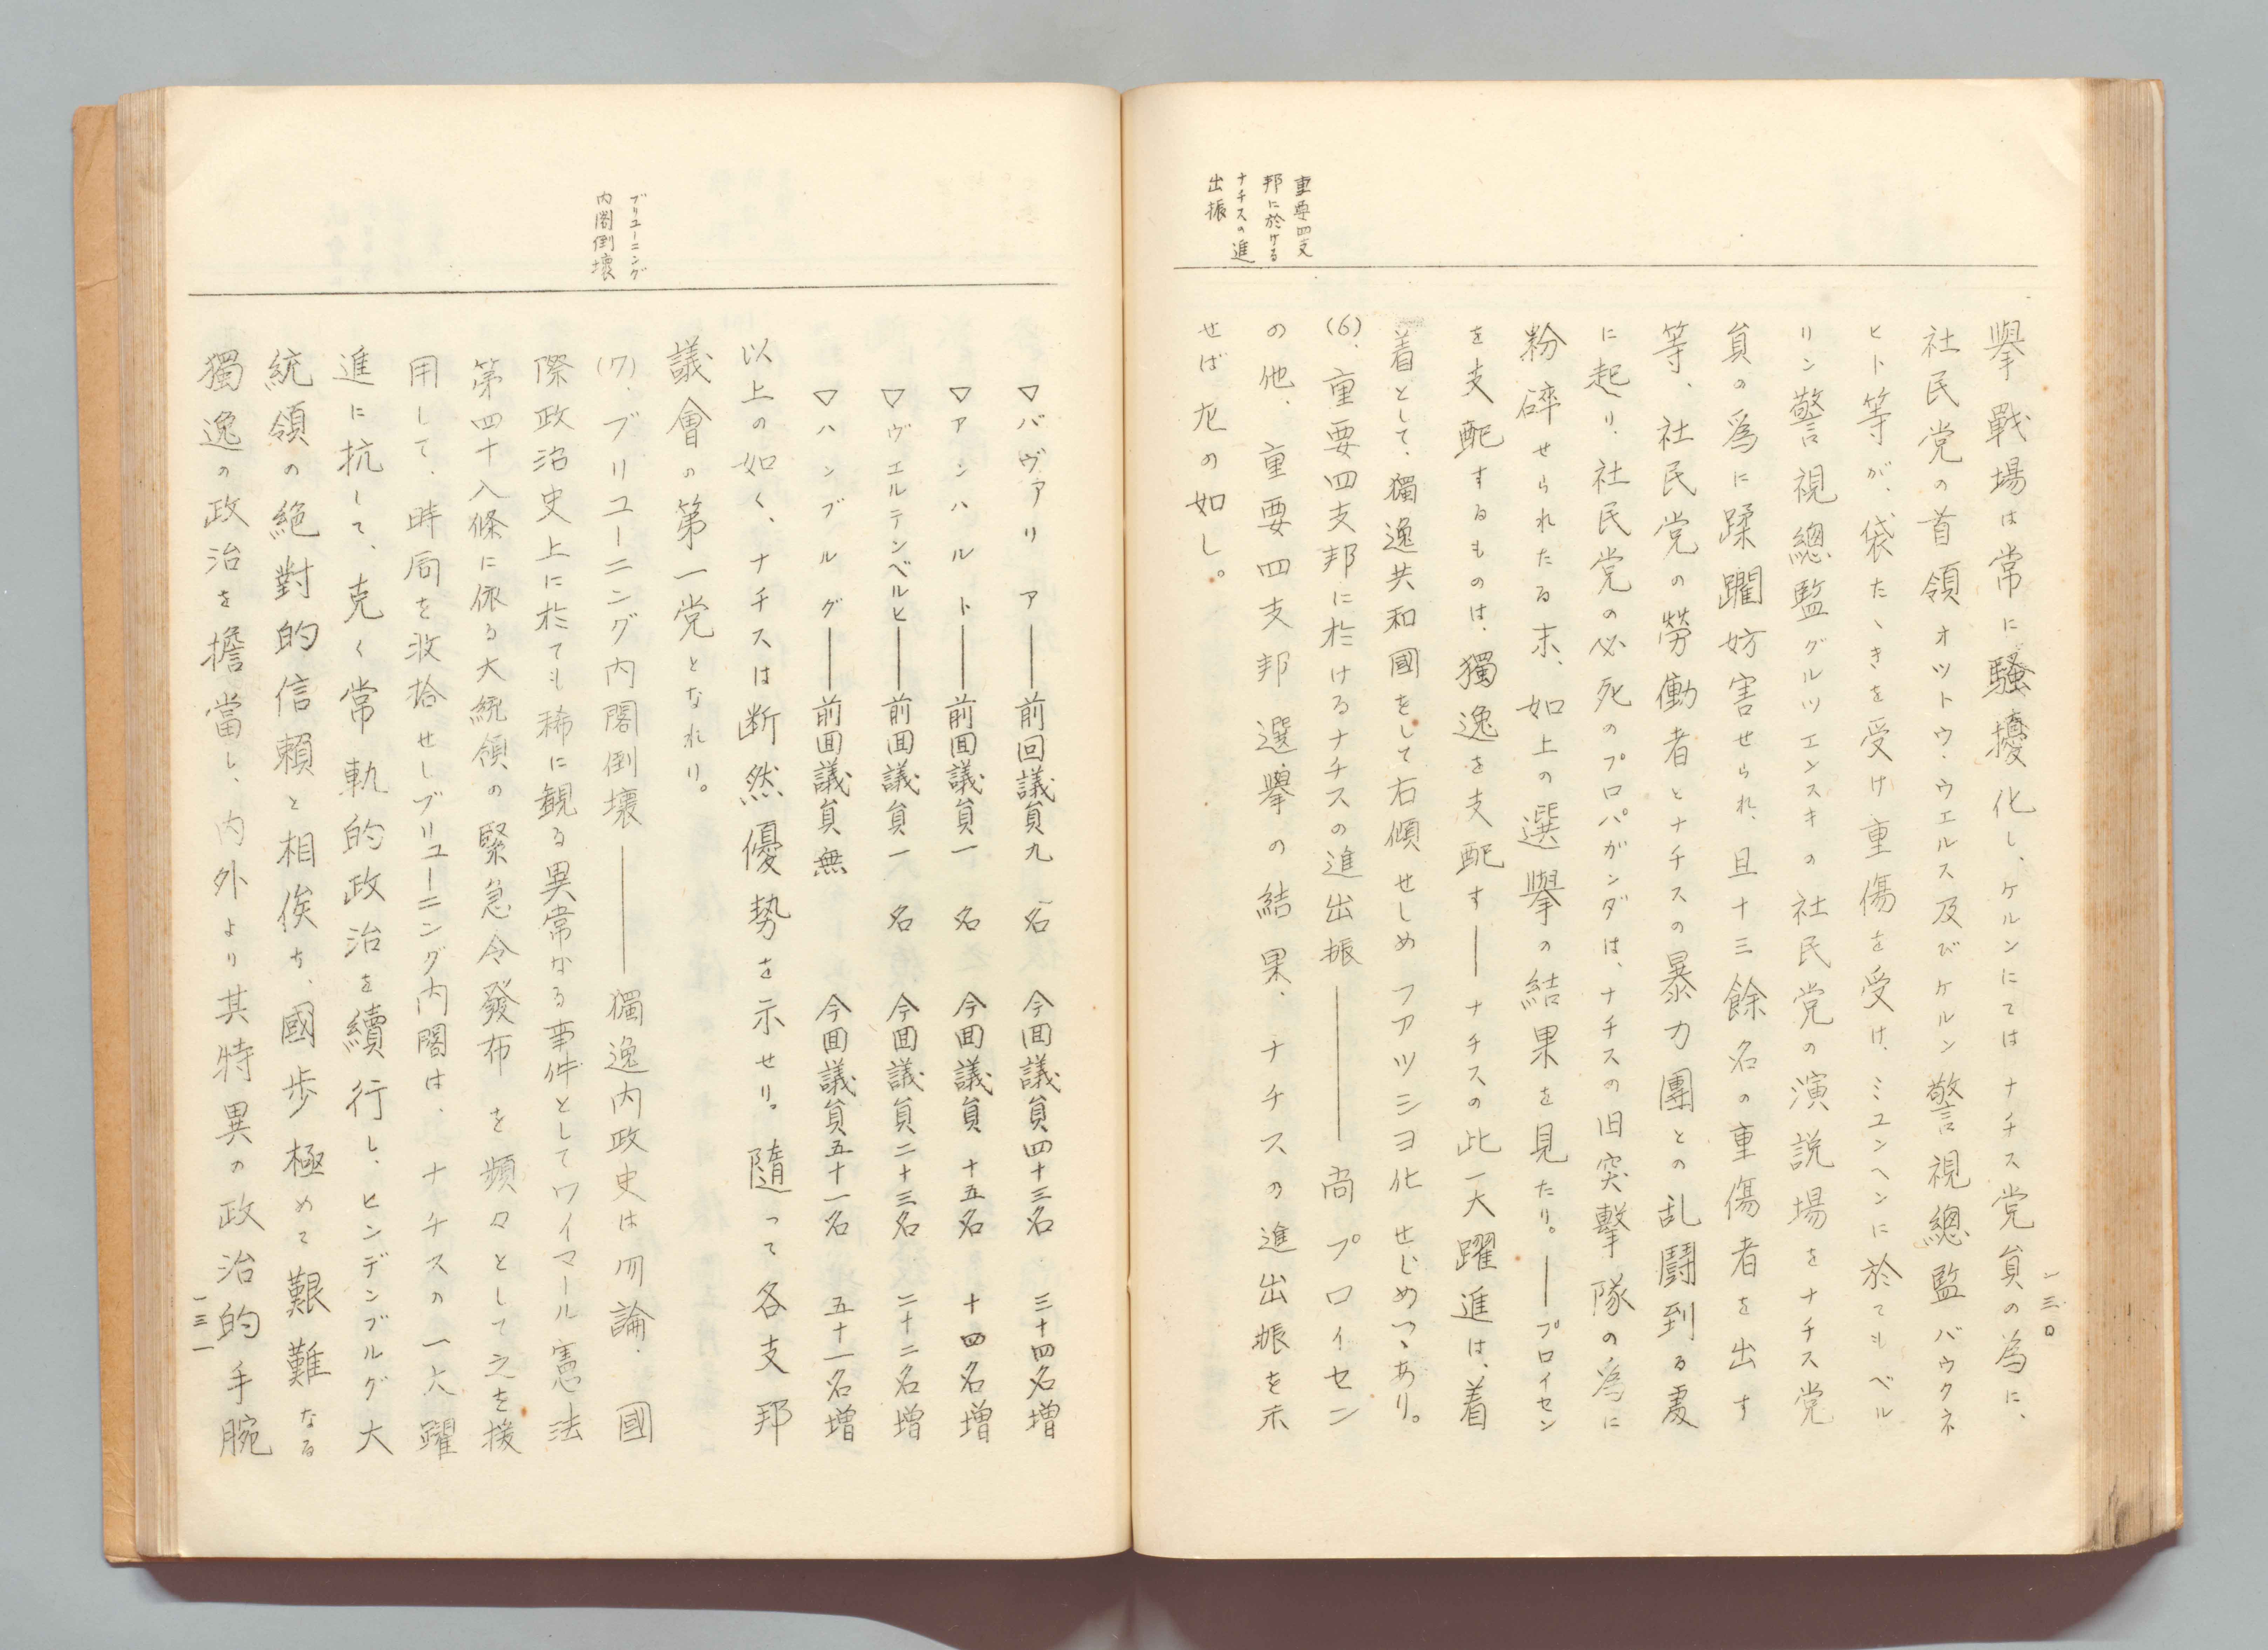 重要四支
邦に於ける
ナチスの進
出振
擧戰場は常に騷擾化し、ケルンにてはナチス党員の為に、
社民党の首領オツトウ・ウエルス及びケルン警視總監バウクネ
ヒト等が、袋たゝきを受け重傷を受け、ミユンヘンに於てもベル
リン警視總監グルツエンスキの社民党の演説場をナチス党
員の爲に蹂躙妨害せられ、且十三餘名の重傷者を出す
等、社民党の勞働者とナチスの暴力團との乱鬪到る處
に起り、社民党の必死のプロパガンダは、ナチスの旧突擊隊の為に
粉碎せられたる末、如上の選擧の結果を見たり。―プロイセン
を支配するものは、獨逸を支配す―ナチスの此一大躍進は、着
着として、獨逸共和國をして右傾せしめフアツシヨ化せしめつゝあり。
(6)、重要四支邦に於けるナチスの進出振――尚プロイセン
の他、重要四支邦選擧の結果、ナチスの進出振を示
せば左の如し。
一三〇
ブリユーニング
内閣倒壞
▽バヴアリア――前回議員九名 今回議員四十三名 三十四名増
▽アンハルト――前回議員一名 今回議員十五名 十四名増
▽ヴエルテンベルヒ――前回議員一名 今回議員二十三名 二十二名増
▽ハンブルグ――前回議員無 今回議員五十一名 五十一名増
以上の如く、ナチスは断然優勢を示せり。隨って各支邦
議會の第一党となれり。
(7)、ブリユーニング内閣倒壞――獨逸内政史は勿論、國
際政治史上に於ても稀に観る異常なる事件としてワイマール憲法
第四十八條に依る大統領の緊急令發布を頻々として之を援
用して、時局を收拾せしブリユーニング内閣は、ナチスの一大躍
進に抗して、克く常軌的政治を續行し、ヒンデンブルグ大
統領の絶對的信頼と相俟ち、國歩極めて艱難なる
獨逸の政治を擔當し、内外より其特異の政治的手腕
一三一